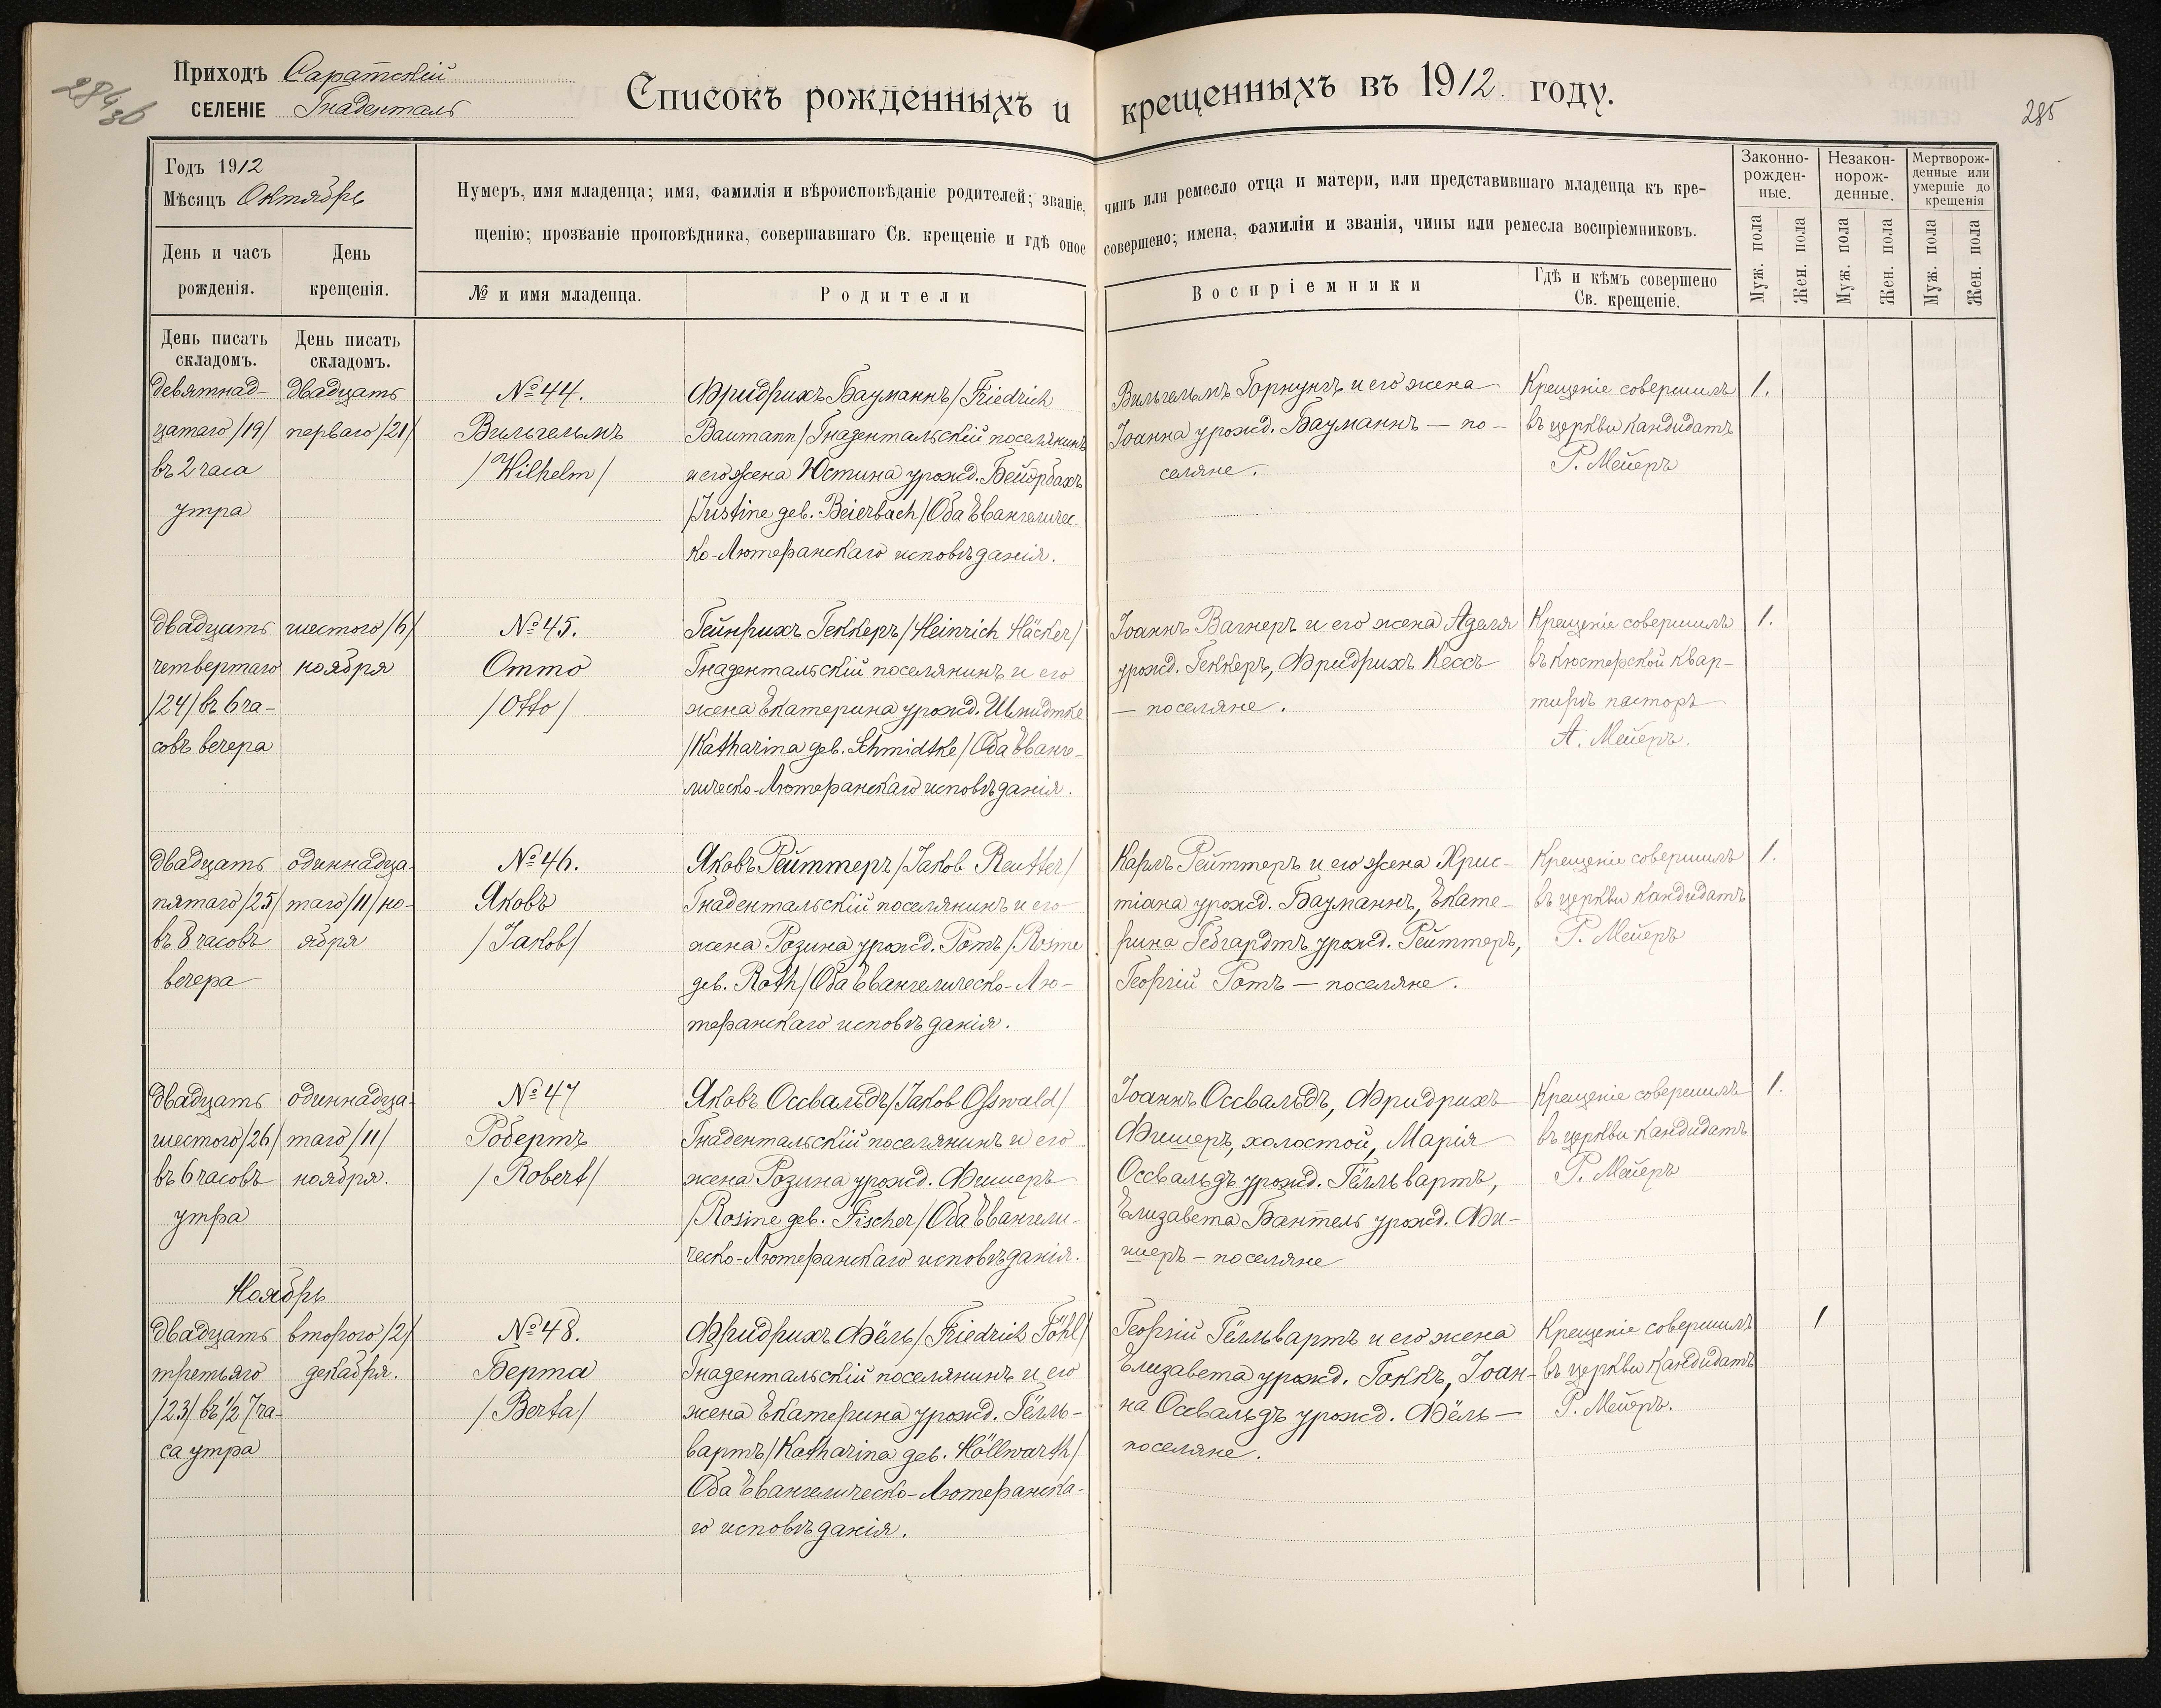 284/36
Приходъ Саратскій
СЕЛЕНІЕ Гнаденталь
Списокъ рожденныхъ и крещенныхъ въ 1912 году.
285
Годъ 1912
Мѣсяцъ Октябрь
День и часъ рожденія.
День крещенія.
Нумеръ, имя младенца; имя, фамилія и вѣроисповѣданіе родителей; званіе, чинъ или ремесло отца и матери, или представившаго младенца къ кре-
щенію; прозваніе проповѣдника, совершавшаго Св. крещеніе и гдѣ оное совершено; имена, фамиліи и званія, чины или ремесла воспріемниковъ.
№ и имя младенца.
Родители
Воспріемники
Гдѣ и кѣмъ совершено
Св. крещеніе.
Законно-
рожден-
ные.
Незакон-
норож-
денные.
Мертворож-
денные или
умершіе до
крещенія
Муж. пола
Жен. пола
Муж. пола
Жен. пола
Муж. пола
Жен. пола
День писать
складомъ.
День писать
складомъ.
девятнад-
цатаго /19/
въ 2 часа
утра
двадцать
перваго /21/
№ 44.
Вильгельмъ
/Wilhelm/
Фридрихъ Бауманнъ /Friedrich
Baumann/ Гнадентальскій поселянинъ
и его жена Юстина урожд. Бейербахъ
/Justine geb. Beierbach/ Оба Евангеличес-
ко-Лютеранскаго исповѣданія.
Вильгельмъ Горнунгъ и его жена
Іоанна урожд. Бауманнъ — по-
селяне.
Крещеніе совершилъ
въ церкви кандидатъ
Р. Мейеръ
1.
двадцать
четвертаго
/24/ въ 6 ча-
совъ вечера
шестого /6/
ноября
№ 45.
Отто
/Otto/
Гейнрихъ Геккеръ /Heinrich Häcker/
Гнадентальскій поселянинъ и его
жена Екатерина урожд. Шмидтке
/Katharina geb. Schmidtke/ Оба Еванге-
лическо-Лютеранскаго исповѣданія.
Іоаннъ Вагнеръ и его жена Аделя
урожд. Геккеръ, Фридрихъ Кессъ
— поселяне.
Крещеніе совершилъ
въ кюстерской квар-
тирѣ пасторъ
А. Мейеръ.
1.
двадцать
пятаго /25/
въ 8 часовъ
вечера
одиннадца-
таго /11/ но-
ября
№ 46.
Яковъ
/Jakob/
Яковъ Рейттеръ /Jakob Reutter/
Гнадентальскій поселянинъ и его
жена Розина урожд. Ротъ /Rosine
geb. Roth/ Оба Евангелическо-Лю-
теранскаго исповѣданія.
Карлъ Рейттеръ и его жена Хрис-
тіана урожд. Бауманнъ, Екате-
рина Гебгардтъ урожд. Рейттеръ,
Георгій Ротъ — поселяне.
Крещеніе совершилъ
въ церкви кандидатъ
Р. Мейеръ
1.
двадцать
шестого /26/
въ 6 часовъ
утра
одиннадца-
таго /11/
ноября.
№ 47
Робертъ
/Robert/
Яковъ Оссвальдъ /Jakob Oßwald/
Гнадентальскій поселянинъ и его
жена Розина урожд. Фишеръ
/Rosine geb. Fischer/ Оба Евангели-
ческо-Лютеранскаго исповѣданія.
Іоаннъ Оссвальдъ, Фридрихъ
Фишеръ, холостой, Марія
Оссвальдъ урожд. Гёлльвартъ,
Елизавета Бантель урожд. Фи-
шеръ — поселяне
Крещеніе совершилъ
въ церкви кандидатъ
Р. Мейеръ
1.
Ноябрь
двадцать
третьяго
/23/ въ 1/2 7 ча-
са утра
второго /2/
декабря.
№ 48.
Берта
/Berta/
Фридрихъ Фёль /Friedrich Föhl/
Гнадентальскій поселянинъ и его
жена Екатерина урожд. Гёлль-
вартъ /Katharina geb. Höllwarth/
Оба Евангелическо-Лютеранска-
го исповѣданія.
Георгій Гёлльвартъ и его жена
Елизавета урожд. Гоккъ, Іоан-
на Оссвальдъ урожд. Фёль —
поселяне.
Крещеніе совершилъ
въ церкви кандидатъ
Р. Мейеръ.
1